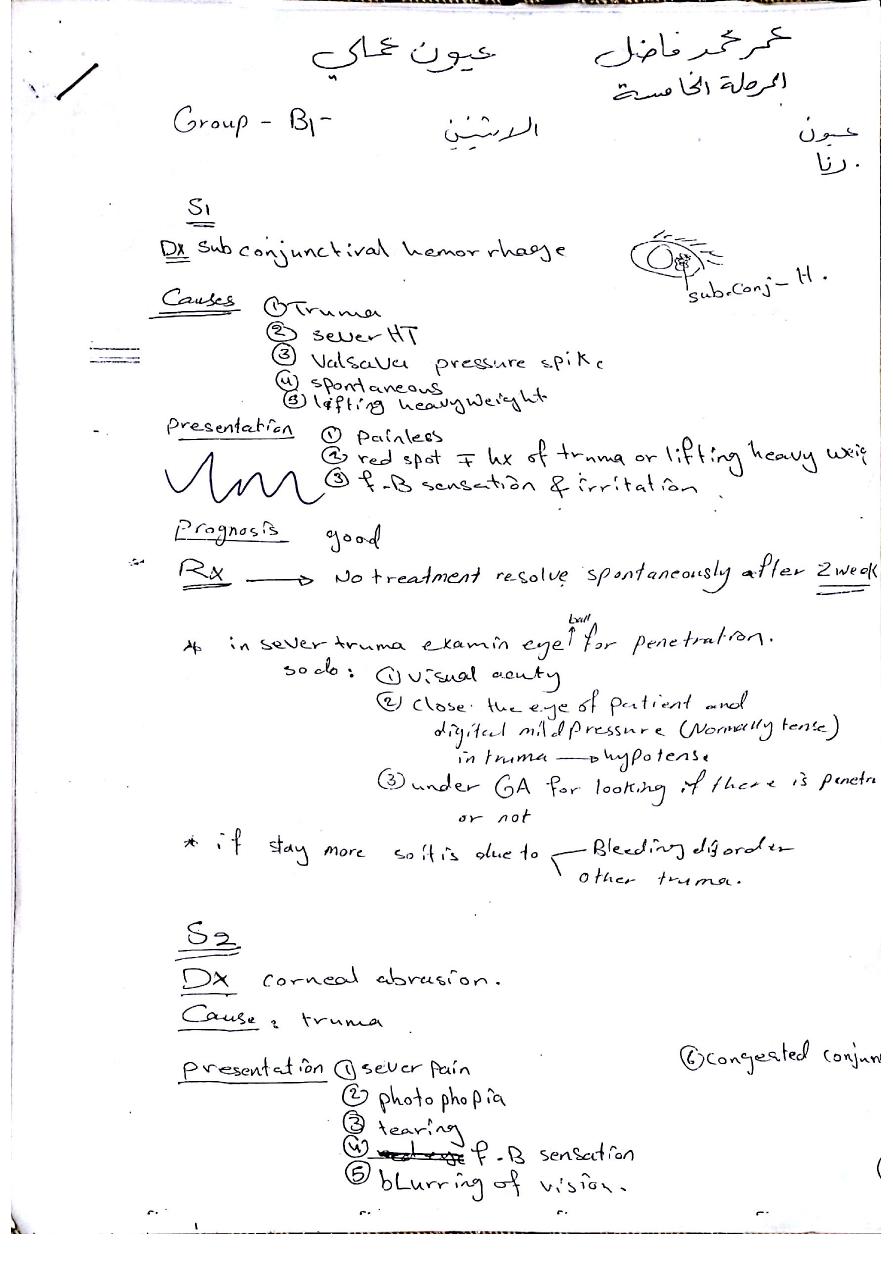 عيون عملي
عمر محمد فاضل
المرحلة الخامسة
Group - B1-
الاثنين
عيون
رنا
S1
Dx Subconjunctival hemorrhage
sub.conj - H.
Causes ① Truma
② sever HT
③ Valsava pressure spike
④ spontaneous
⑤ lifting heavy weight
Presentation ① painless
② red spot ∓ hx of truma or lifting heavy weig
③ f.B sensation & irritation.
Prognosis good
Rx → No treatment resolve spontaneously after 2 week
ball
* in sever truma examin eye ↑ for penetration.
so do : ① Visual acuty
② Close the eye of patient and
digital mild pressure (Normally tense)
in truma → hypotense
③ under GA for looking if there is penetra
or not
* if stay more so it is due to Bleeding disorder
other truma.
S2
Dx corneal abrasion.
Cause : truma
presentation ① sever pain
⑥ congested conjun
② photophopia
③ tearing
④ f.B sensation
⑤ bLurring of vision.